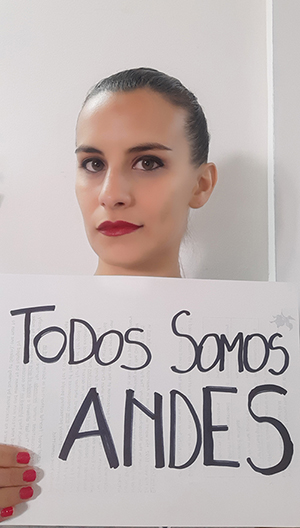 TODOS SOMOS
ANDES